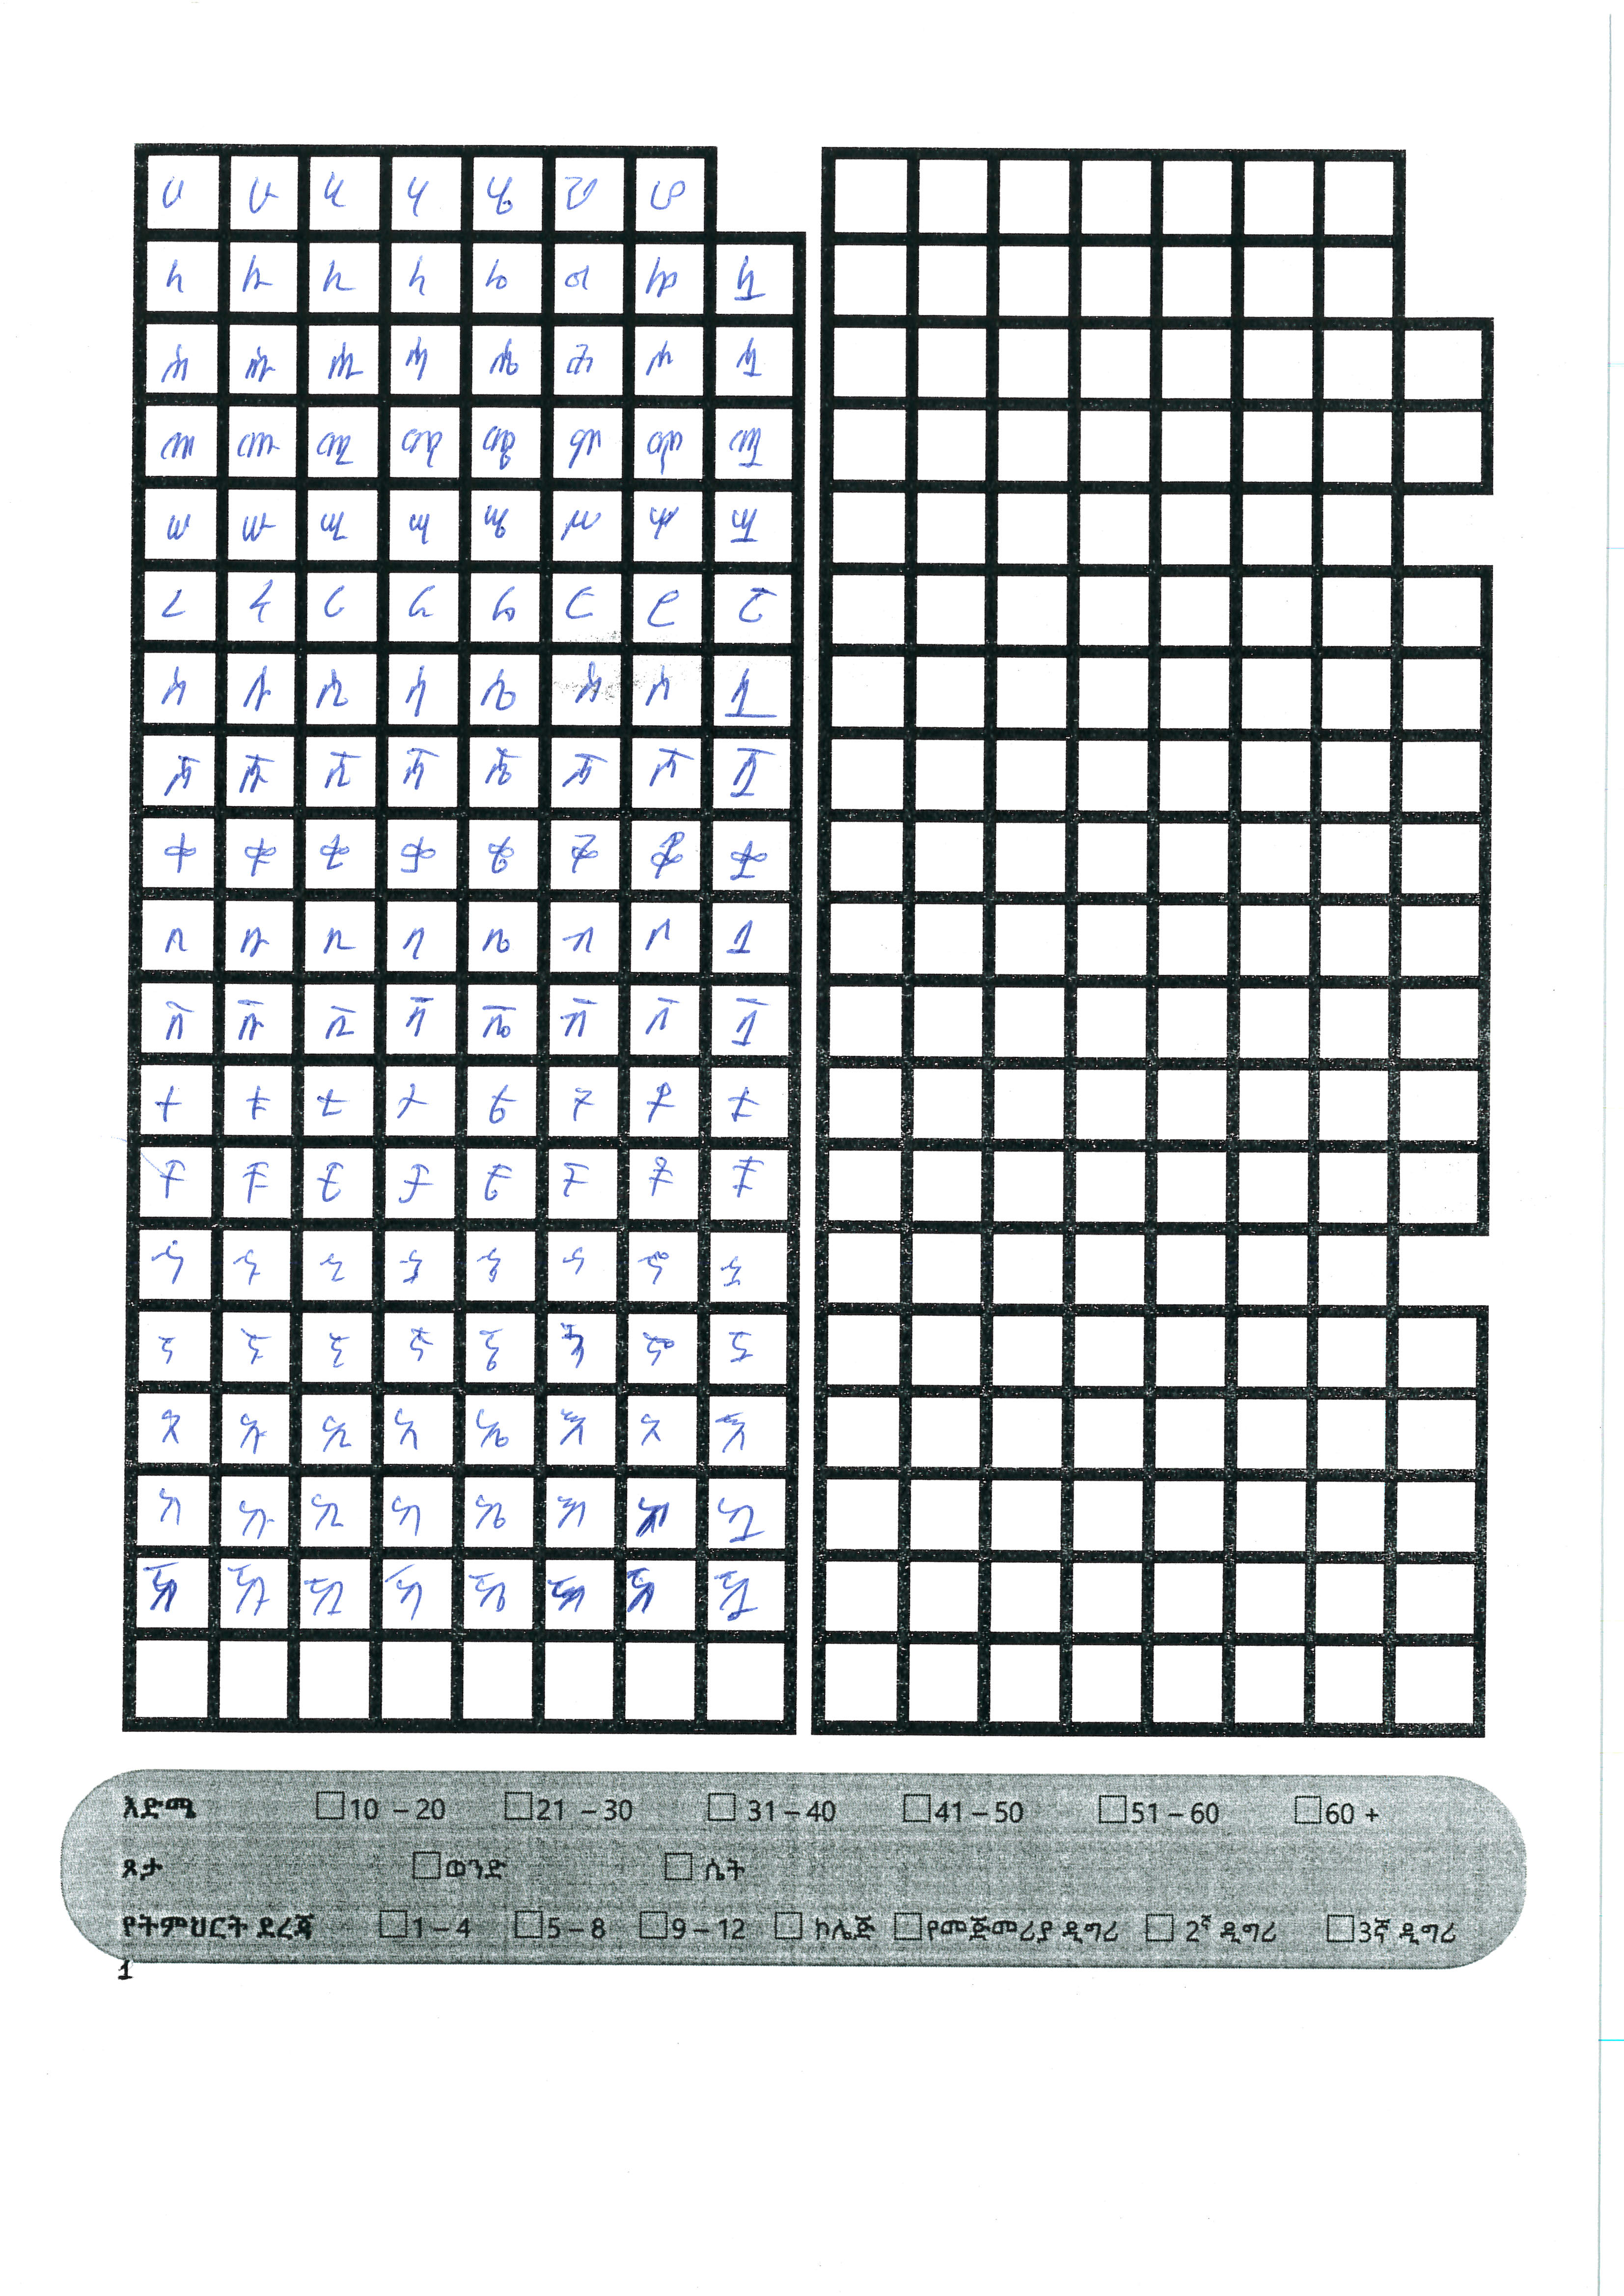 ሀ ሁ ሂ ሃ ሄ ህ ሆ
ለ ሉ ሊ ላ ሌ ል ሎ ሏ
ሐ ሑ ሒ ሓ ሔ ሕ ሖ ሗ
መ ሙ ሚ ማ ሜ ም ሞ ሟ
ሠ ሡ ሢ ሣ ሤ ሥ ሦ ሧ
ረ ሩ ሪ ራ ሬ ር ሮ ሯ
ሰ ሱ ሲ ሳ ሴ ስ ሶ ሷ
ሸ ሹ ሺ ሻ ሼ ሽ ሾ ሿ
ቀ ቁ ቂ ቃ ቄ ቅ ቆ ቋ
በ ቡ ቢ ባ ቤ ብ ቦ ቧ
ቨ ቩ ቪ ቫ ቬ ቭ ቮ ቯ
ተ ቱ ቲ ታ ቴ ት ቶ ቷ
ቸ ቹ ቺ ቻ ቼ ች ቾ ቿ
ነ ኑ ኒ ና ኔ ን ኖ ኗ
ኘ ኙ ኚ ኛ ኜ ኝ ኞ ኟ
አ ኡ ኢ ኣ ኤ እ ኦ ኧ
ከ ኩ ኪ ካ ኬ ክ ኮ ኳ
ኸ ኹ ኺ ኻ ኼ ኽ ኾ ዃ
እድሜ 10 – 20 21 – 30 31 – 40 41 – 50 51 – 60 60 +
ጾታ ወንድ ሴት
የትምህርት ደረጃ 1 – 4 5 – 8 9 – 12 ኮሌጅ የመጀመሪያ ዲግሪ 2ኛ ዲግሪ 3ኛ ዲግሪ
1